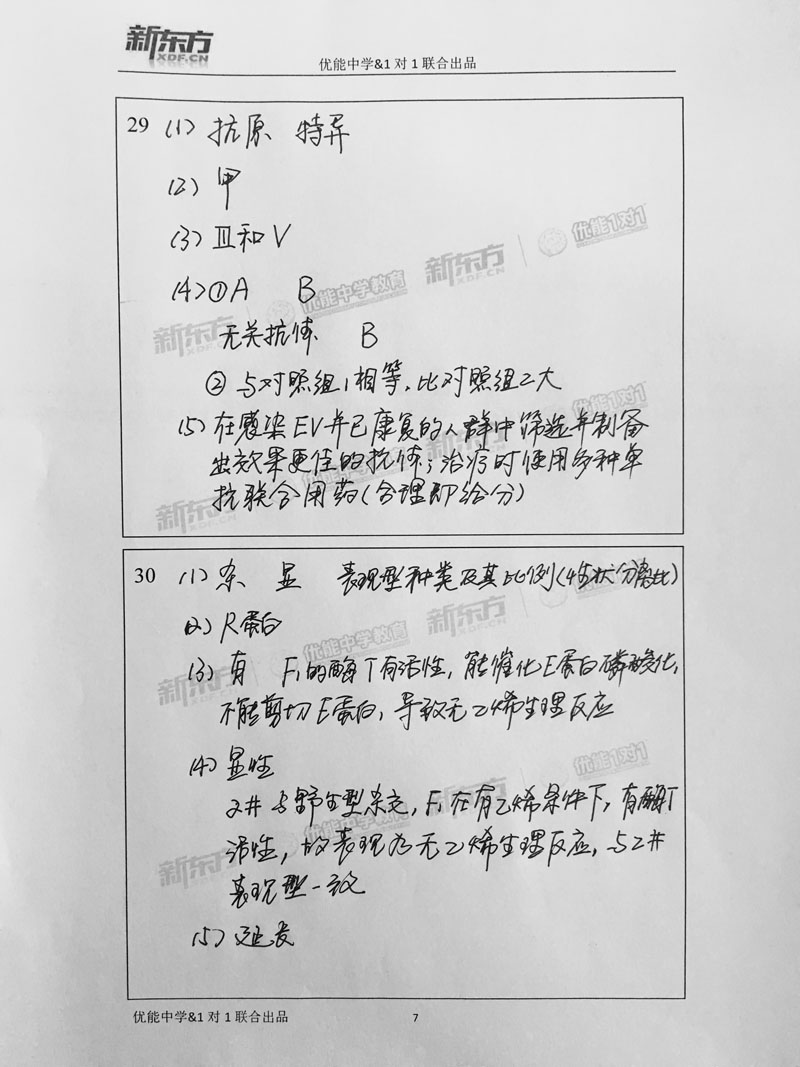 新东方
XDF.CN
优能中学&1 对 1 联合出品
29 (1) 抗原 特异
(2) 甲
(3) Ⅲ和Ⅴ
(4) ① A B
无关抗体 B
② 与对照组1相等,比对照组2大
(5) 在感染EV并已康复的人群中筛选并制备
出效果更佳的抗体;治疗时使用多种单
抗联合用药(合理即给分)
30 (1) 杂 显 表现型种类及其比例(性状分离比)
(2) R蛋白
(3) 有 F₁的酶T有活性,能催化E蛋白磷酸化,
不能剪切E蛋白,导致无乙烯生理反应
(4) 显性
2#与野生型杂交,F₁在有乙烯条件下,有酶T
活性,故表现为无乙烯生理反应,与2#
表现型一致
(5) 延长
优能中学&1 对 1 联合出品 7